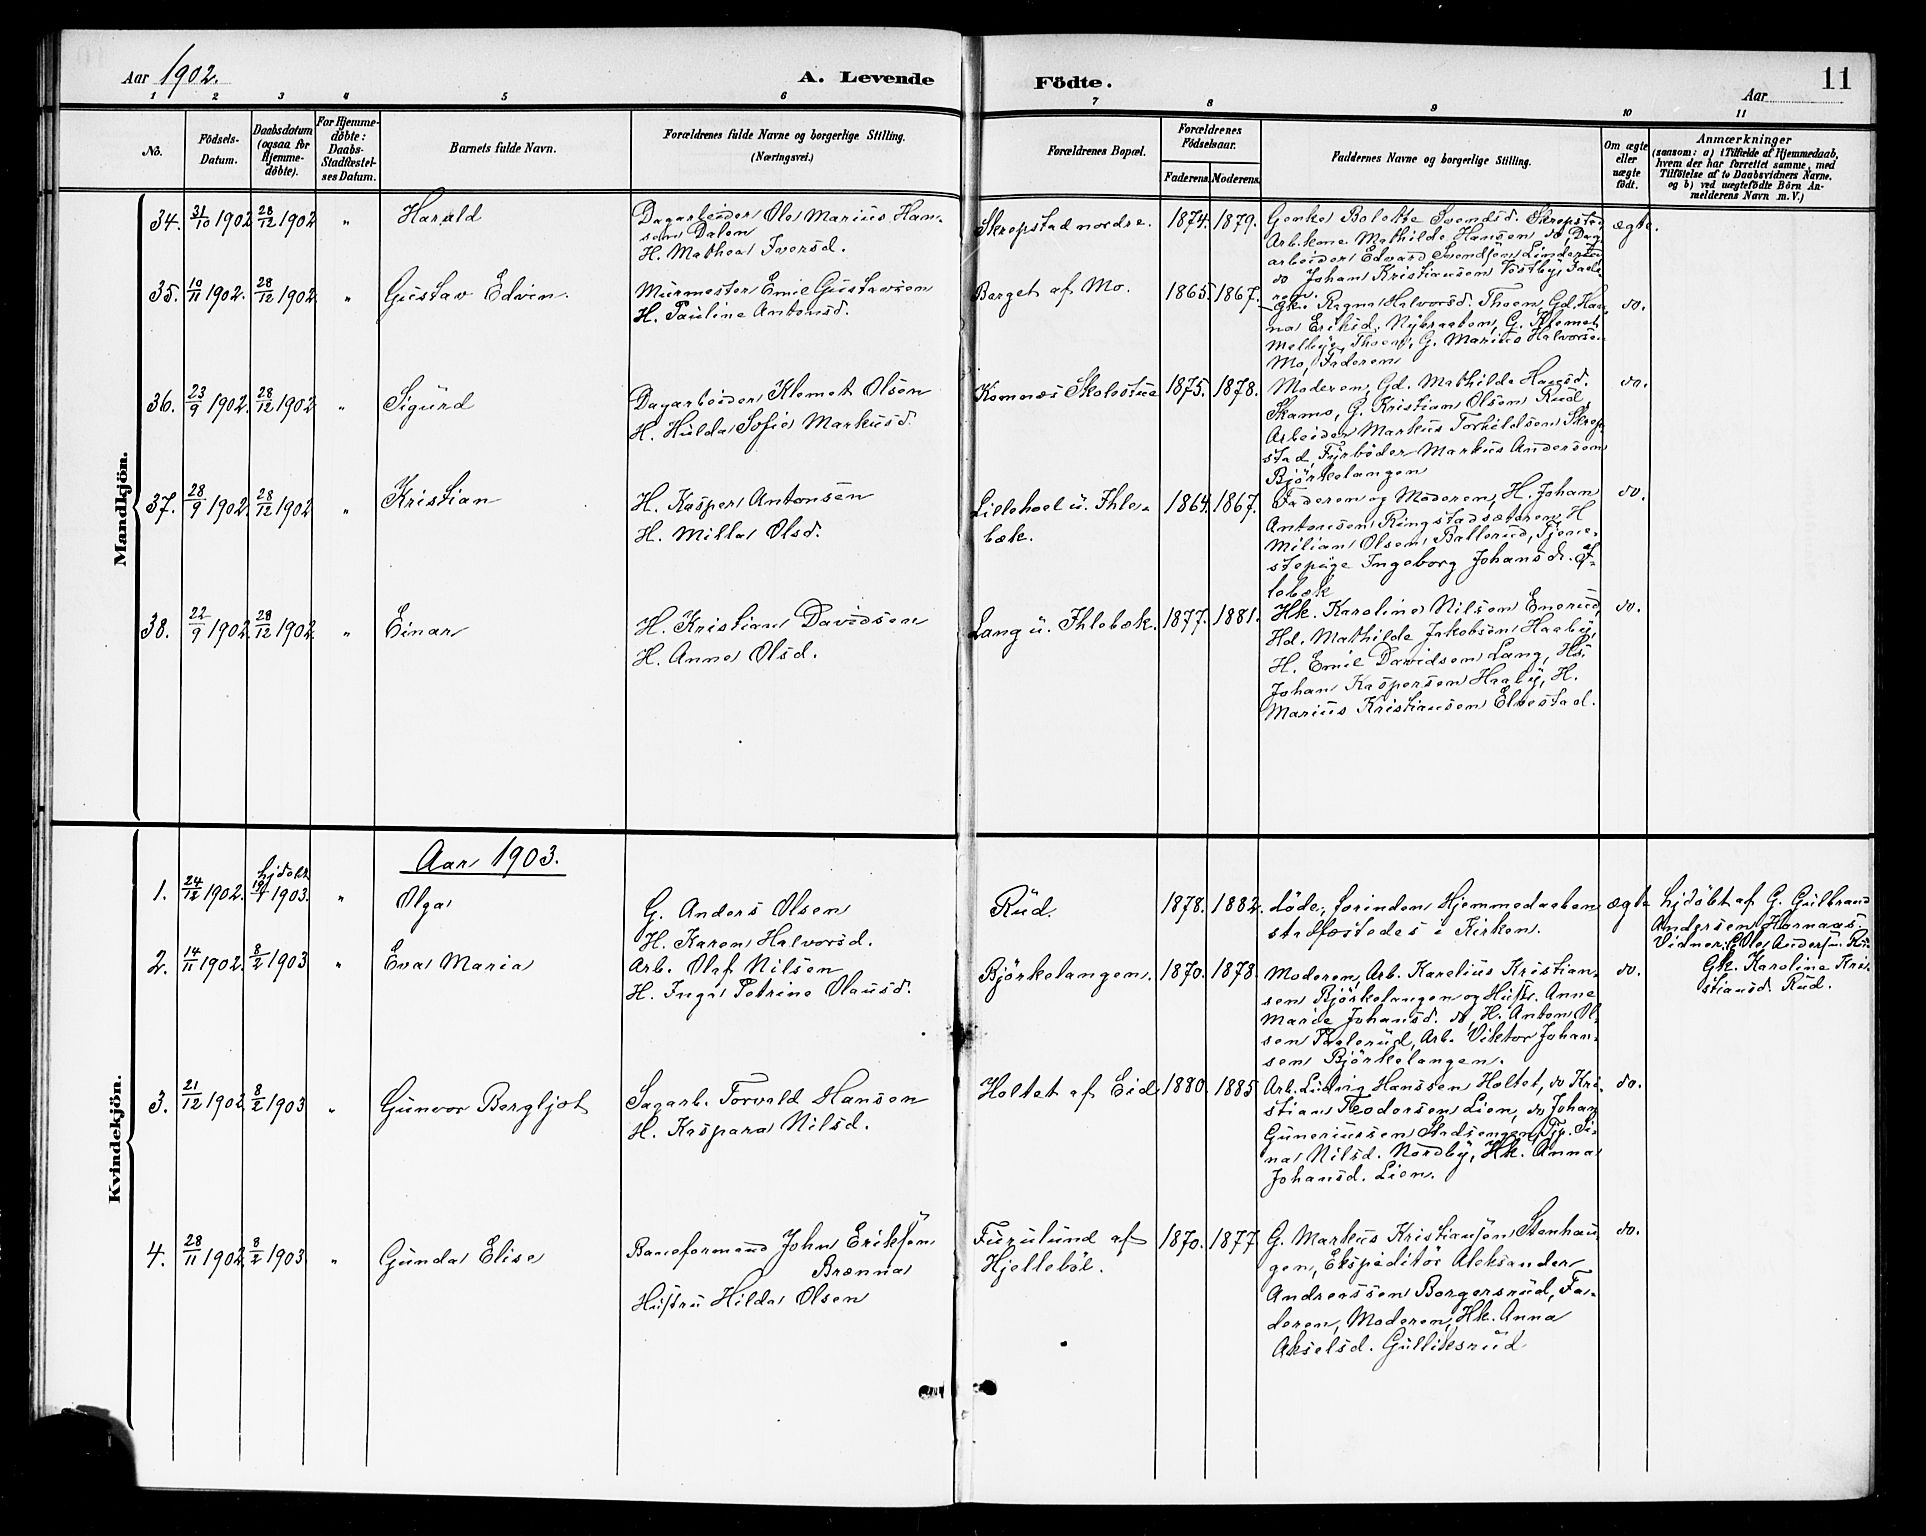 Aar 1902.
A. Levende
Födte.
Aar
11
1 2 3 4 5 6 7 8 9 10 11
No.
Födsels-
Datum.
Daabsdatum
(ogsaa for
Hjemme-
döbte).
For Hjemme-
döbte:
Daabs-
Stadfæstel-
ses Datum.
Barnets fulde Navn.
Forældrenes fulde Navne og borgerlige Stilling.
(Næringsvei.)
Forældrenes Bopæl.
Forældrenes
Födselsaar.
Faderens.
Moderens.
Faddernes Navne og borgerlige Stilling.
Om ægte
eller
uægte
födt.
Anmærkninger
(saasom: a) i Tilfælde af Hjemmedaab,
hvem der har forrettet samme, med
Tilföielse af to Daabsvidners Navne.
og b) ved uægtefödte Börn An-
melderens Navn m. V.)
Mandkjön.
34. 31/10 1902 28/12 1902 " Harald
Dagarbeider Ole Marius Han-
sen Dalen
H. Mathea Iversd.
Skrepstad nordre. 1874. 1879.
Bolette Svendsd. Skrepstad,
Arb.kone Mathilde Hansen do, Dag-
arbeider Edvard Svendsen
do Johan Kristiansen Vestby, Fade-
ren.
ægte.
35. 10/11 1902. 28/12 1902. " Gustav Edvin.
Murmester Emil Gustavsen
H. Pauline Antonsd.
Berget af Mo. 1865. 1867.
Gk. Ragna Halvorsd. Thoen, Gd. Han-
na Eriksd. Nybraaten, G. Klemet
Melbye, Thoen, G. Marius Halvorsen
Mo, Faderen
do.
36. 23/9 1902 28/12 1902 " Sigurd
Dagarbeider Klemet Olsen
H. Hulda Sofie Markusd.
Komnæs Skolestue 1875. 1878.
Moderen, Gd. Mathilde Hansd.
Skamo, G. Kristian Olsen Rud,
Arbeider Markus Torkildsen Skrep-
stad, Fyrböder Markus Andersen
Björkelangen
do.
37. 28/9 1902. 28/12 1902 " Kristian
H. Kasper Antonsen
H. Milla Olsd.
Lillehoel u. Ihle-
bæk. 1864. 1867.
Faderen og Moderen, H. Johan
Antonsen Ringstadsæteren, H
Milian Olsen Ballerud, Tjene-
stepige Ingeborg Johansd. af
lebæk
do.
38. 22/9 1902. 28/12 1902. " Einar
H. Kristian Davidsen
H. Anne Olsd.
Lang u. Ihlebæk. 1877. 1881.
Hk. Karoline Nilsen Enerud,
Hd. Mathilde Jakobsen Haaby,
H. Emil Davidsen Lang, Hs.
Johan Kaspersen Haaby, H.
Marius Kristiansen Elvestad.
do.
Kvindekjön.
Aar 1903.
1. 24/12 1902. hjdöbt 1903. " Olga
G. Anders Olsen
H. Karen Halvorsd.
Rud. 1878. 1882.
döde, forinden Hjemmedaaben
stadfæstedes i Kirken.
ægte
hjdöbt af G. Gulbrand
Andersen Hornaas.
Vidner: G. Ole Andersen Rud
Gk. Karoline Kri-
stiansd. Rud.
2. 14/11 1902. 8/2 1903 " Eva Maria
Arb. Olaf Nilsen
H. Inga Petrine Olausd.
Björkelangen. 1870. 1878.
Moderen, Arb. Karelius Kristian-
sen Björkelangen og Hustr. Anne
Marie Johansd. do, H. Anton Ol-
sen Taalerud, Arb. Viktor Johan-
sen Björkelangen.
do.
3. 21/12 1902. 8/2 1903 " Gunvor Bergljot
Sagarb. Torvald Hansen
H. Kaspara Nilsd.
Holtet af Eid 1880. 1885
Arb. Ludvig Hanssen Holtet, do Kri-
stian Teodorsen Lien, do Johan
Guneriussen Stadsengen, Tp. Si-
na Nilsd. Nordby, Hk. Anna
Johansd. Lien.
do.
4. 28/11 1902. 8/2 1903 " Gunda Elise
Baneformand John Eriksen
Brænna
Hustru Hilda Olsen
Furulund af
Hjelleböl. 1870. 1877
G. Markus Kristiansen Stenhau-
gen, Ekspeditör Aleksander
Andreassen Borgersrud, Fa-
deren, Moderen, Hk. Anna
Akselsd. Gulliksrud
do.